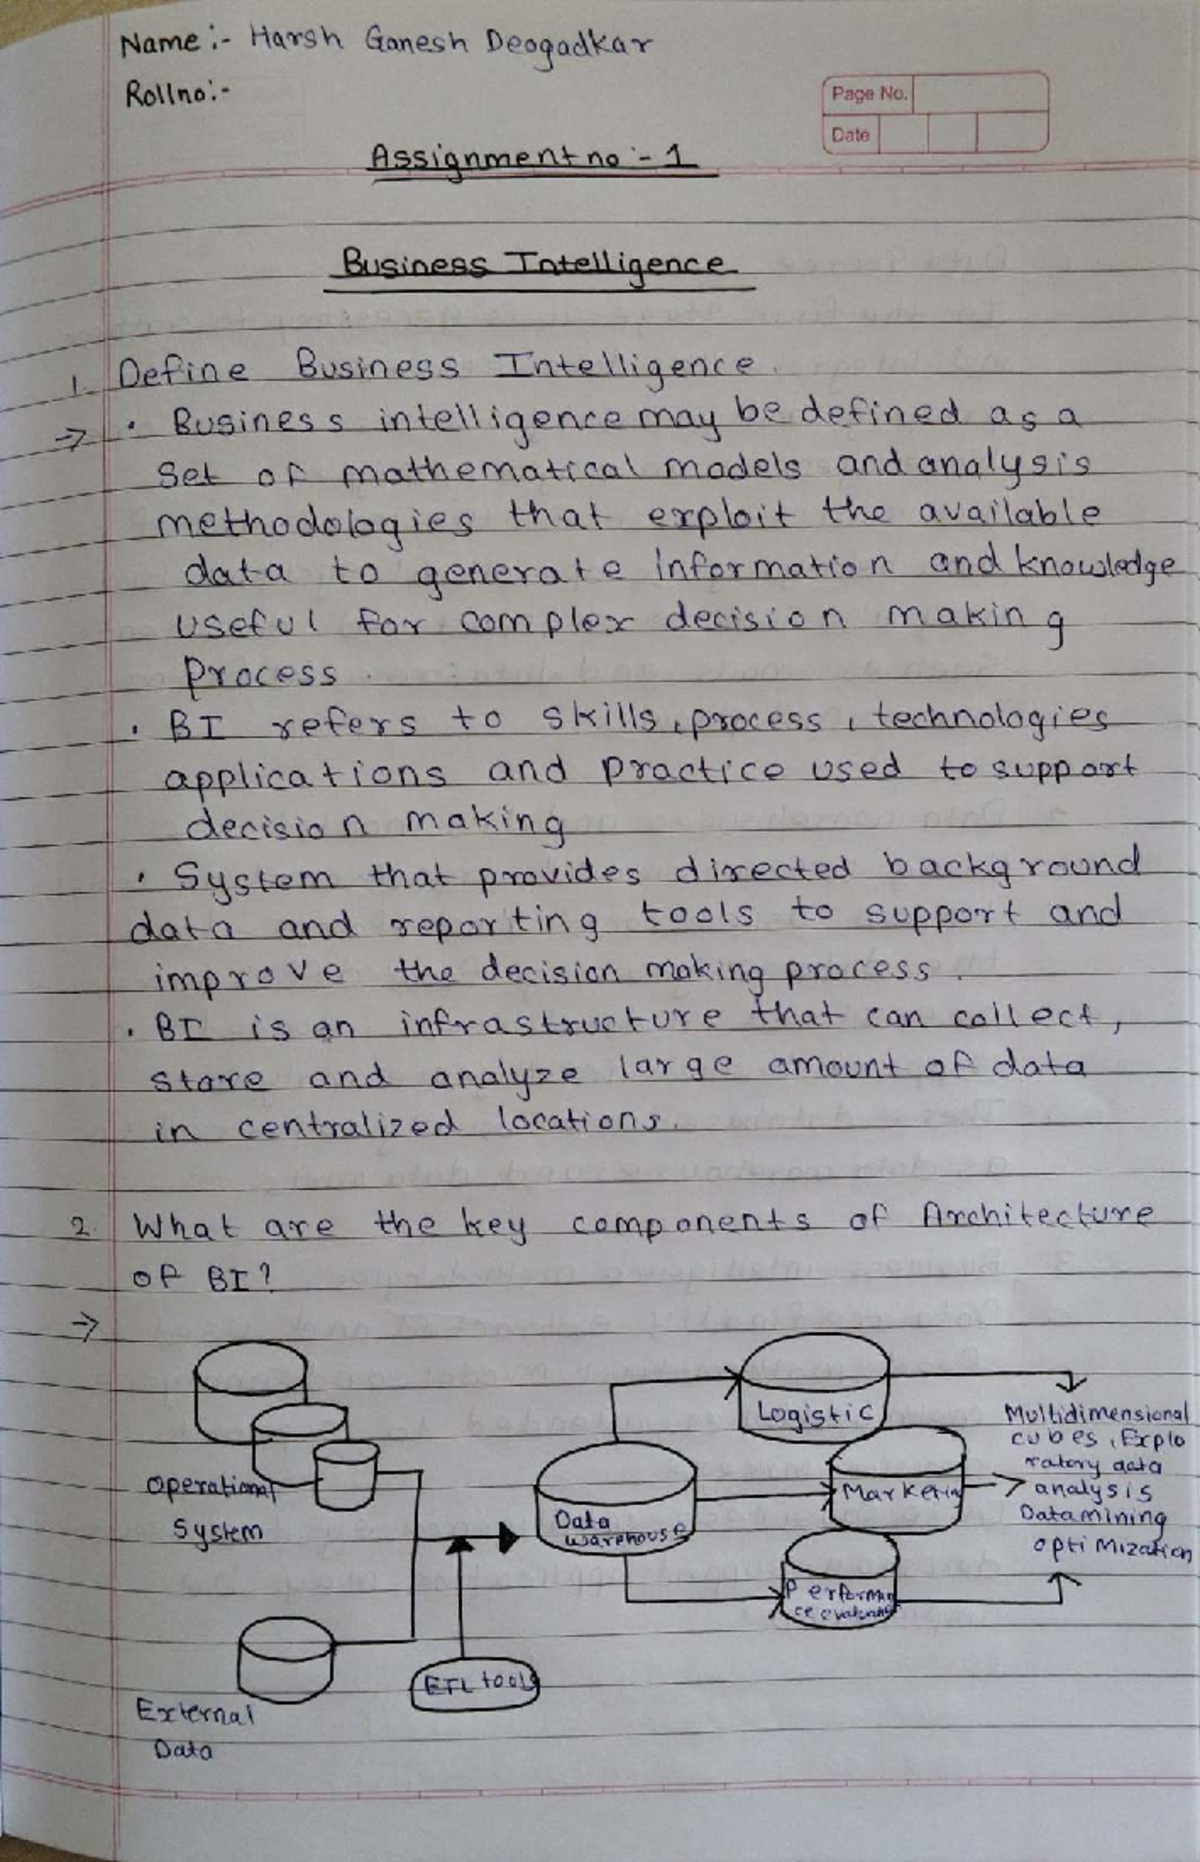 Name :- Harsh Ganesh Deogadkar
Rollno:-
Page No.
Date
Assignment no :- 1
Business Intelligence
1. Define Business Intelligence.
→ • Business intelligence may be defined as a
set of mathematical models and analysis
methodologies that exploit the available
data to generate information and knowledge
useful for complex decision making
process.
• BI refers to skills, process, technologies
applications and practice used to support
decision making
• System that provides directed background
data and reporting tools to support and
improve the decision making process.
• BI is an infrastructure that can collect,
store and analyze large amount of data
in centralized locations.
2. What are the key components of Architecture
of BI?
→
Operational
System
External
Data
ETL tools
Data
warehouse
Logistic
Marketin
Performan
ce evaluation
Multidimensional
cubes, Explo
ratory data
analysis
Datamining
optimization